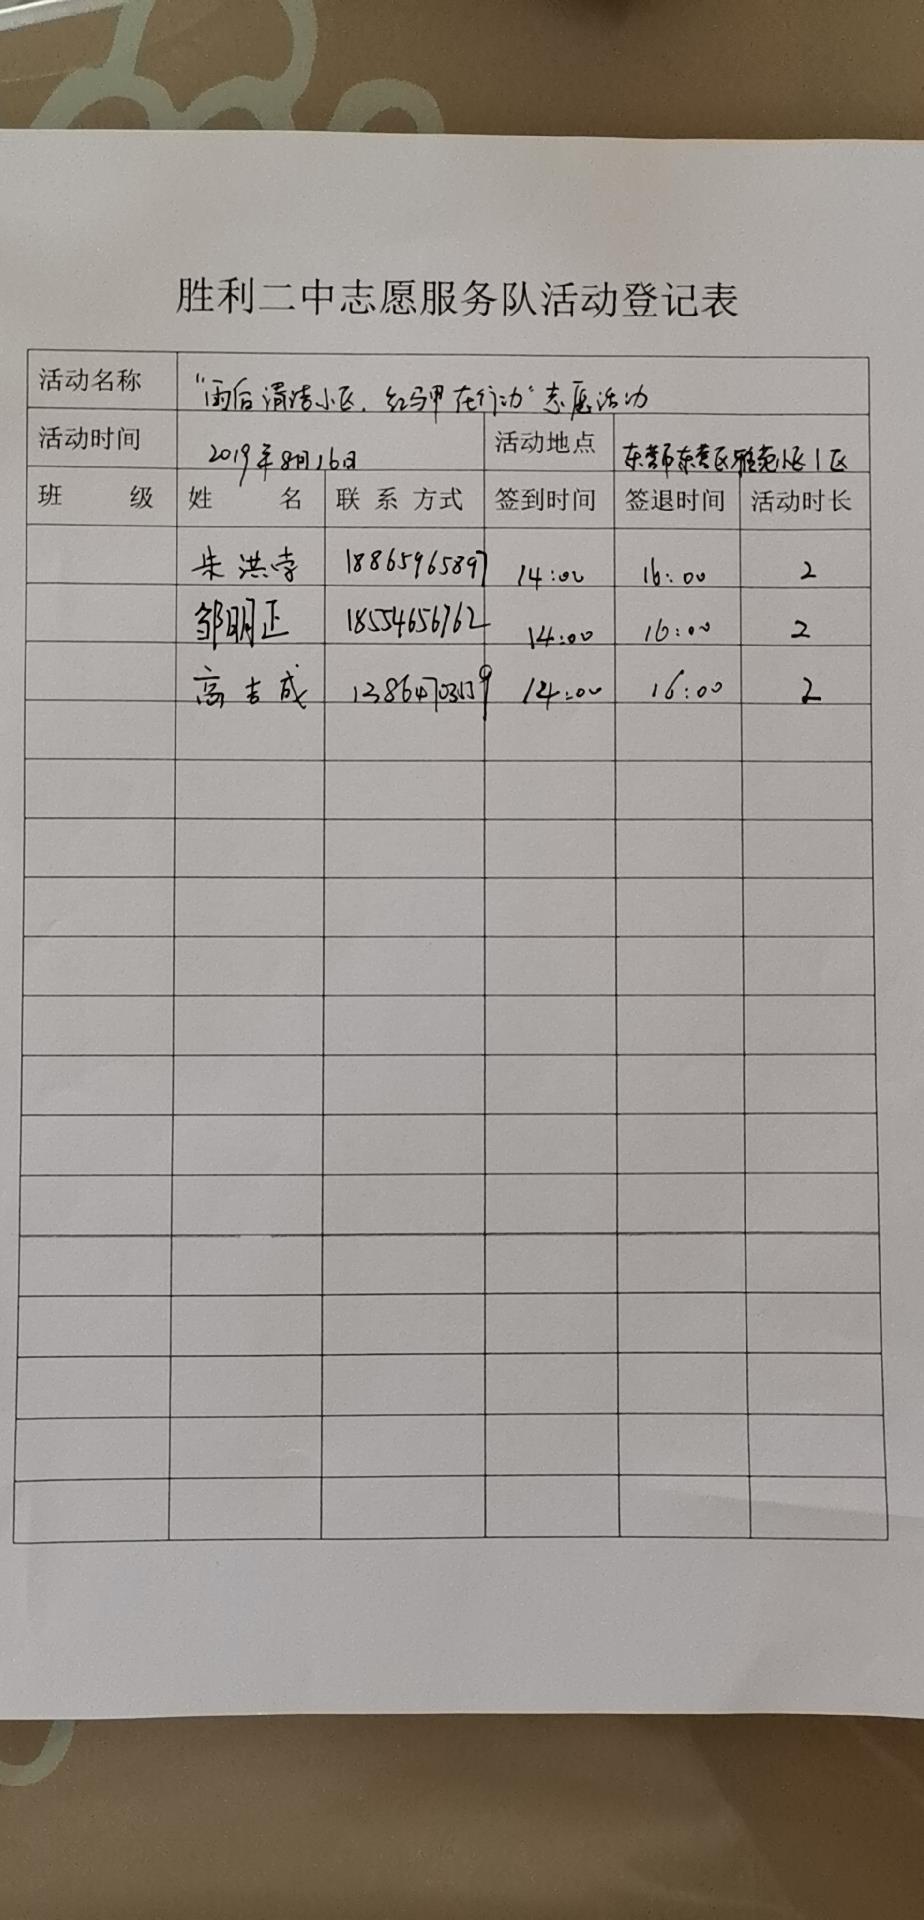 胜利二中志愿服务队活动登记表
活动名称 “雨后清洁小区,红马甲在行动”志愿活动
活动时间 2019年8月16日 活动地点 东营市东营区雅苑小区1区
班 级 姓 名 联系方式 签到时间 签退时间 活动时长
朱洪 18865965897 14:00 16:00 2
邹明正 18554656762 14:00 16:00 2
高吉成 14:00 16:00 2